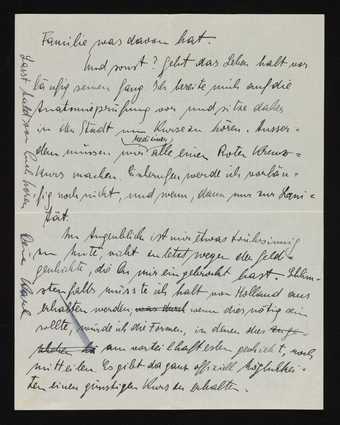 Familie was davon hat.
Und sonst? Geht das Leben halt vor
läufig seinen Gang. Ich bereite mich auf die
Anatomieprüfung vor und sitze daher
in der Stadt um Kurse zu hören. Ausser-
dem müssen wir Mediziner alle einen Roten Kreuz-
Kurs machen. Einberufen werde ich vorläu-
fig noch nicht, und wenn, dann nur zur Sani-
tät.
Im Augenblick ist mir etwas trübsinnig
zu Mute, nicht zuletzt wegen der Geld-
geschichte, die Du mir eingebrockt hast. Schlimm-
stenfalls müsste ich halt von Holland aus
erhalten werden wenn dies nötig sein
sollte, würde ich die Formen, in denen dies
am vorteilhaftesten geschieht, noch
mitteilen. Es gibt da ganz offiziell Möglichkei-
ten einen günstigen Kurs zu erhalten.
Lasst bald von Euch hören